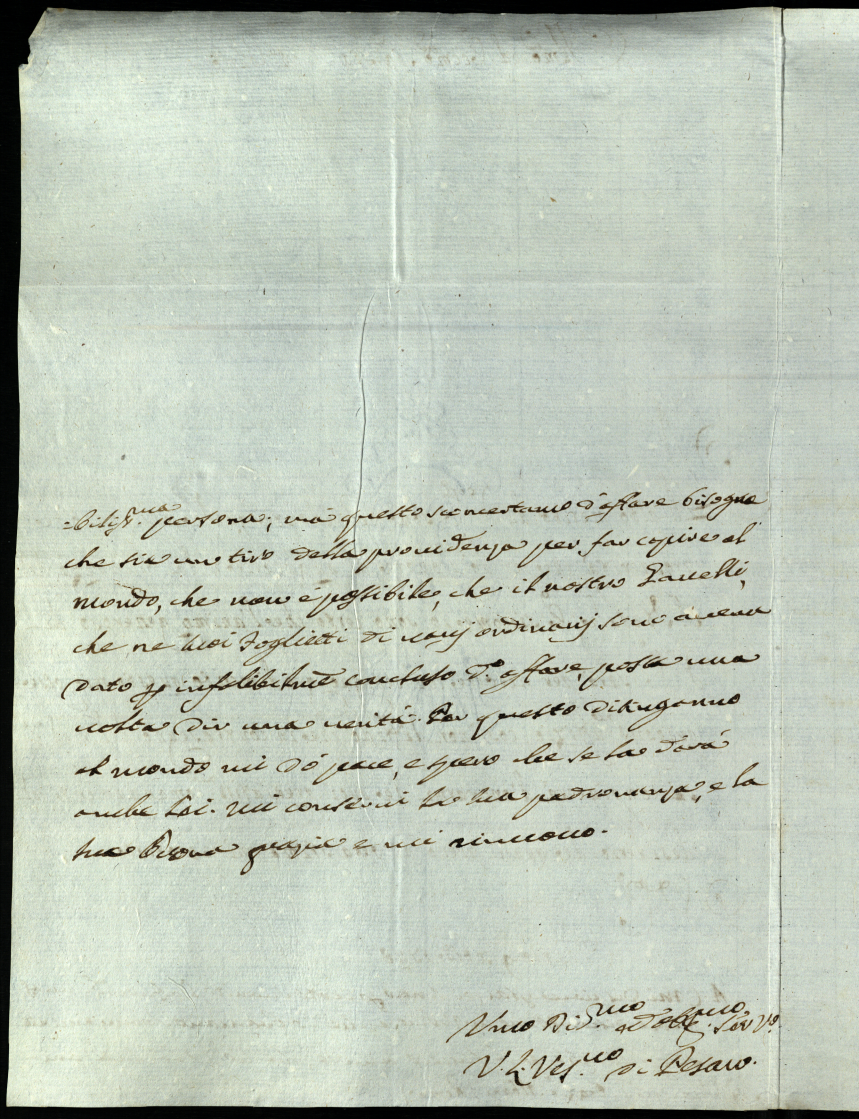 =bilis.ma persona; mà questo sconcertamo d'affare bisogna
che sia un tiro della providenza per far capire al
mondo, che non è possibile, che il nostro Zanelli,
che ne suoi Foglietti di varj ordinarj sono aveva
dato p infalibilme concluso do affare, possa una
volta dir una verità. Per questo disinganno
al mondo mi dò pace, e spero che se la darà
anche Lei. Mi conservi la sua padronanza, e la
sua buona grazia e mi rinuovo.
Vmo Dimo ed Obbmo. Ser Vo.
V. L. Vesmo di Pesaro.